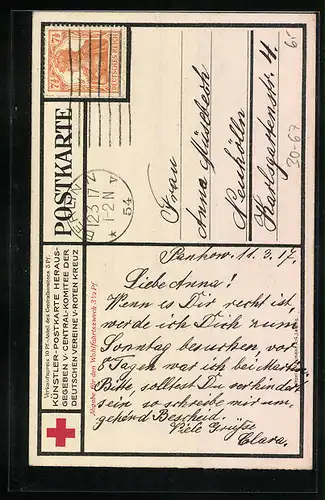 7½ 7½
DEUTSCHES REICH
BERLIN
12.3.17.
1-2 N
* 54
POSTKARTE
Verkaufspreis 10 Pf.
KÜNSTLER-POSTKARTE HERAUS-
GEGEBEN V·CENTRAL-KOMITEE DER
DEUTSCHEN VEREINE V·ROTEN KREUZ
Abgabe für den Wohlfahrtszweck 3½ Pf
Frau
Anna
Neukölln
Karlsgartenstr. 4.
6.-
30-67
Pankow. 11.3.17.
Liebe Anna!
Wenn es Dir recht ist,
werde ich Dich zum
Sonntag besuchen, vor
8 Tagen war ich bei
Bitte, solltest Du verhindert
sein so schreibe mir um-
gehend Bescheid.
Viele Grüße
Clara.